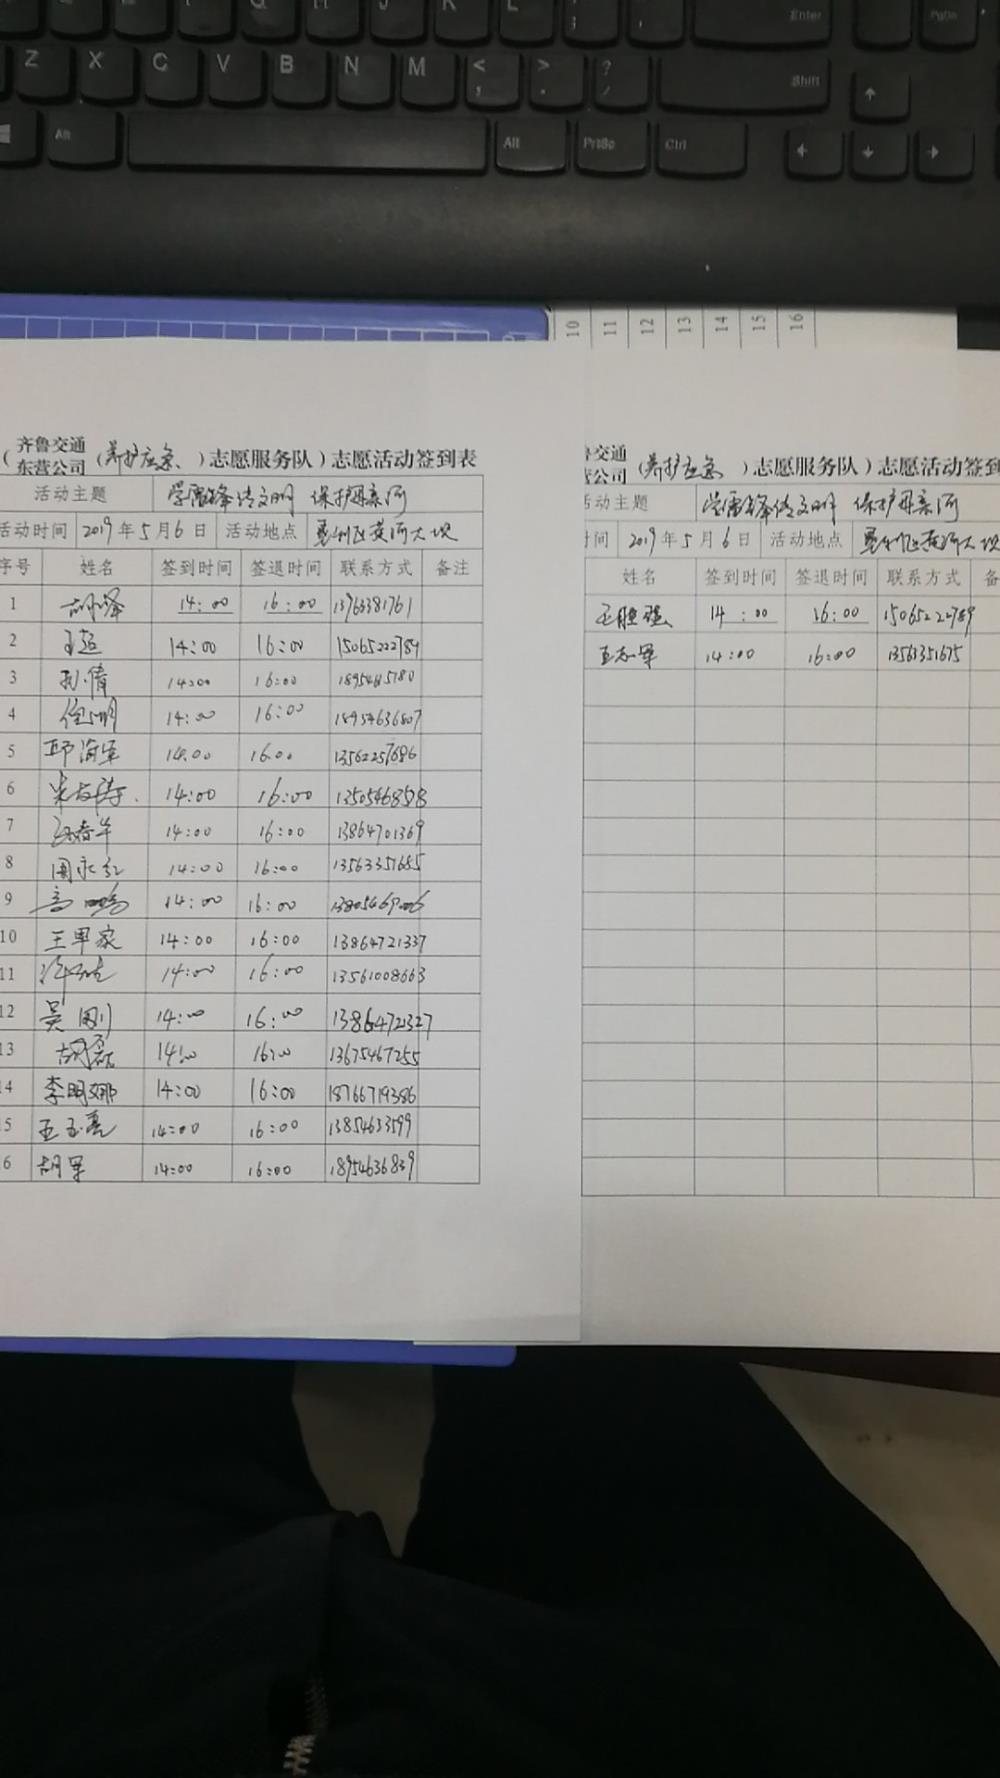 Z X C V B N M < , > . ? / Shift
Enter PgDn
Alt Alt PrtSc Ctrl
10 11 12 13 14 15 16
(齐鲁交通东营公司(养护应急、)志愿服务队)志愿活动签到表
活动主题 学雷锋传文明 保护母亲河
活动时间 2019年5月6日 活动地点 垦利区黄河大坝
序号 姓名 签到时间 签退时间 联系方式 备注
1 14:00 16:00 13963381761
2 王超 14:00 16:00 15065222789
3 孙倩 14:00 16:00 18954685780
4 14:00 16:00 18954636807
5 邱海军 14:00 16:00 13562257686
6 14:00 16:00 13505468528
7 14:00 16:00 13864701369
8 周永红 14:00 16:00 13563351685
9 高鹏 14:00 16:00 13805469006
10 王军家 14:00 16:00 13864721337
11 14:00 16:00 13561008663
12 吴刚 14:00 16:00 13864721327
13 胡磊 14:00 16:00 13675467255
14 李明娜 14:00 16:00 18766719386
15 王玉亮 14:00 16:00 13854633599
16 胡军 14:00 16:00 18954636839
鲁交通营公司(养护应急 )志愿服务队)志愿活动签到
活动主题 学雷锋传文明 保护母亲河
时间 2019年5月6日 活动地点 垦利区黄河大坝
姓名 签到时间 签退时间 联系方式 备
王胜强 14:00 16:00 15065222789
王志军 14:00 16:00 13563351675